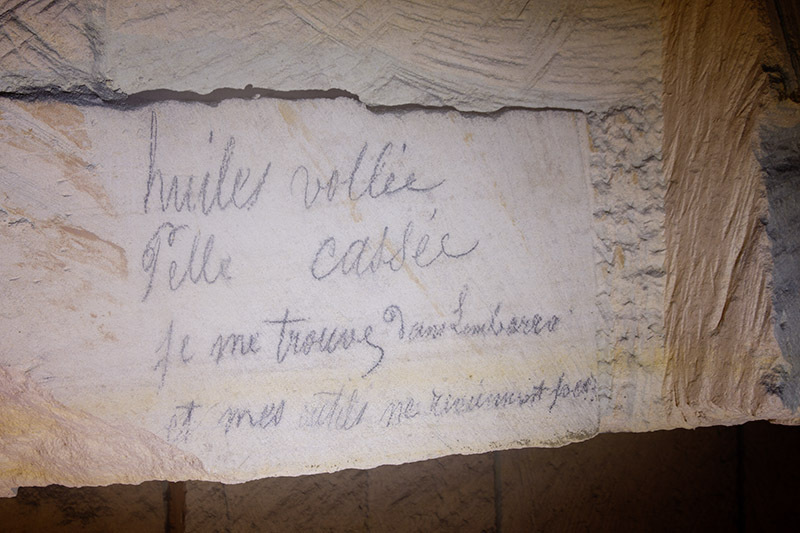 huiles vollée
Pelle cassée
je me trouve dans Lembarra
et mes outils ne reviennent pas